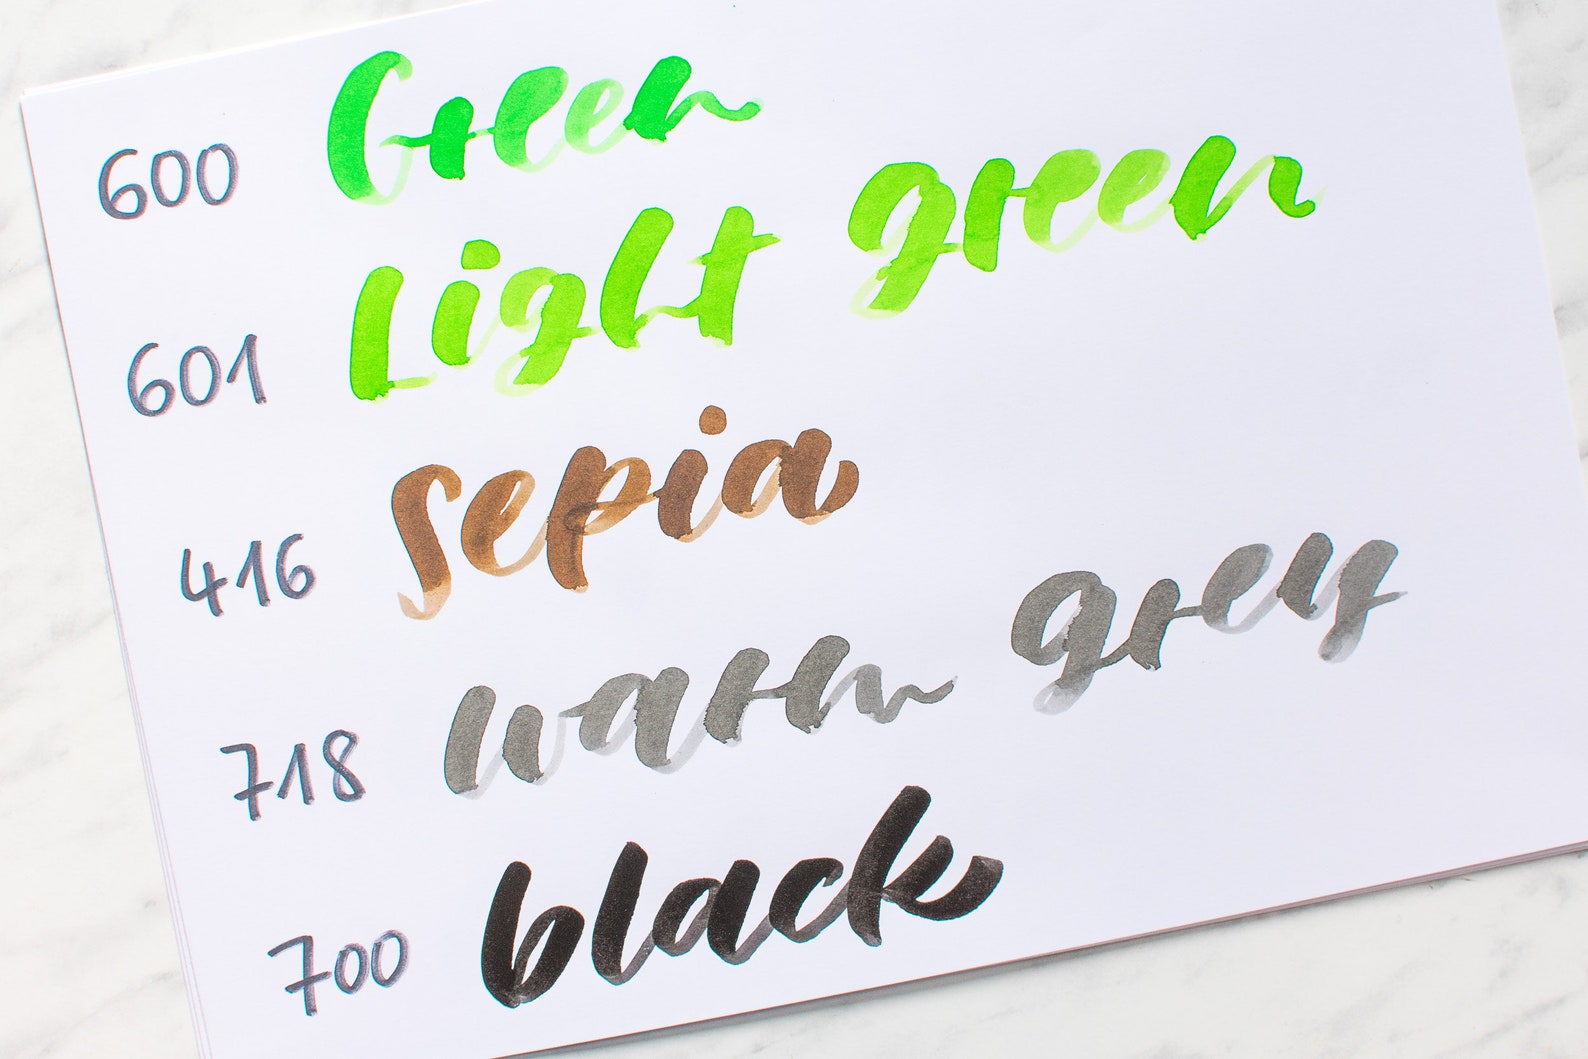 600 Green
601 Light green
416 Sepia
718 warm grey
700 black